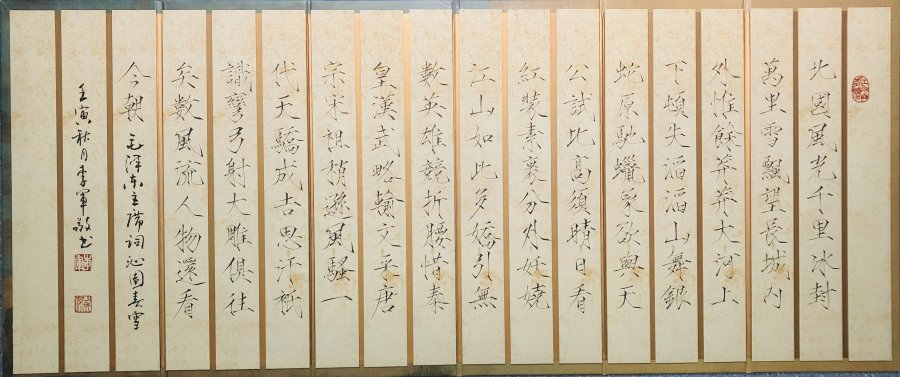 北國風光千里冰封
萬里雪飄望長城內
外惟餘莽莽大河上
下頓失滔滔山舞銀
蛇原馳蠟象欲與天
公試比高須晴日看
紅裝素裹分外妖嬈
江山如此多嬌引無
數英雄競折腰惜秦
皇漢武略輸文采唐
宗宋祖稍遜風騷一
代天驕成吉思汗祇
識彎弓射大雕俱往
矣數風流人物還看
今朝 毛泽东主席词沁園春雪
壬寅秋月李軍敬书